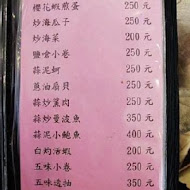 櫻花蝦煎蛋 250 元
炒海瓜子 250 元
炒海菜 200 元
鹽燴小卷 250 元
蒜泥蚵 250 元
蔥油扇貝 250 元
蒜炒螺肉 250 元
蒜炒曼波魚 350 元
蒜泥小鮑魚 400 元
白灼活蝦 200 元
五味小卷 250 元
五味透抽 350 元